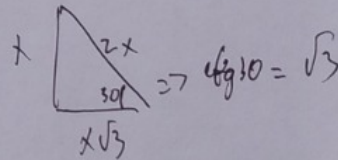 x
2x
30°
x√3
=> ctg30 = √3